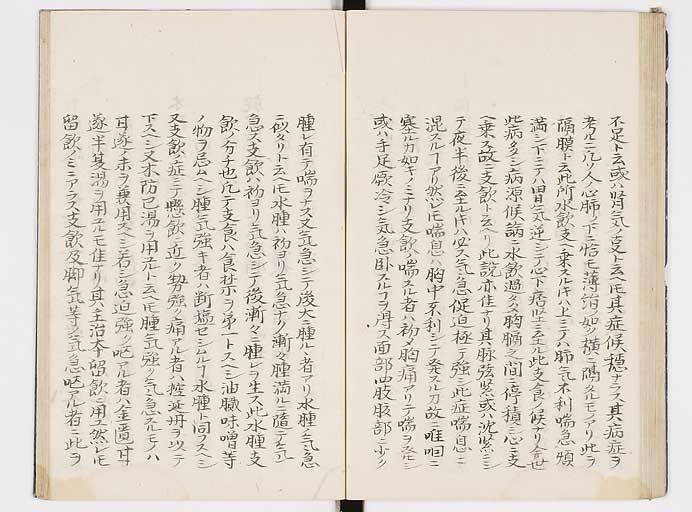 不足ト云或ハ腎気ノ虚ト云ヘ𪜈其症候穏ナラス其病症ヲ
考ルニ凡ソ人ノ心肺ノ下ニ恰モ薄紙ノ如ク横ニ隔タルモノアリ此ヲ
隔膜ト云此所水飲支ヘ乗スル𪜈ハ上ミテハ肺気不利喘急煩
満シ下ミテハ胃気逆シテ心下痞堅ニ至ル此支食ノ候ナリ
此病多シ病源候論ニ水飲過多胸膈之間ニ停積シ心ニ支
ヘ乗ル故ニ支飲ト云ヘリ此説亦佳ナリ其脉弦緊或ハ沈緊ニシ
テ夜半後ニ至ル𪜈ハ必ス気急促迫極テ強シ此症喘息ニ
混スルフアリ然レ𪜈喘息ハ胸中不利シテ発スル故ニ唯咽ニ
塞ルカ如キノミナリ支飲ノ喘スル者ハ初メ胸痛アリテ喘ヲ発シ
或ハ手足厥冷シ気急臥スルフヲ得ス面部四肢腹部ニ少ク
腫レ有テ喘ヲナス又気急シテ後大ニ腫ルヽ者アリ水腫ノ気急
ニ似タリト云ヘ𪜈水腫ハ初ヨリ気急ナク漸々腫満ルニ随テ気ノ
急ス支飲ハ初ヨリ気急シテ後漸々ニ腫レヲ生ス此水腫支
飲ノ分チ也凡テ支食ハ食禁ヲ第一トスヘシ油膩味噌等
ノ物ヲ忌ムヘシ腫気強キ者ハ断塩セシムルフ水腫ト同フスヘシ
又支飲ノ症ニテ懸飲ニ近ク勢強ク痛アル者ハ控涎丹ヲ以テ
下スヘシ又木防己湯ヲ用ユルト云ヘ𪜈腫気強ク気急スルモノハ
甘遂ノ末ヲ兼用スヘシ若シ急迫強ク咳アル者ハ金匱甘
遂半夏湯ヲ用ユルモ佳ナリ其ノ主治本留飲ニ用ユ然レ𪜈
留飲ノミニアラス支飲及脚気等ノ気急咳アル者ニ此ヲ